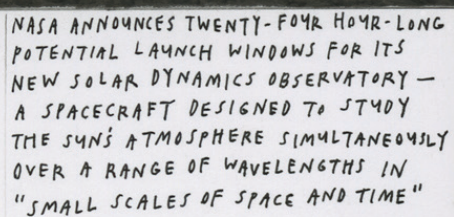 NASA ANNOUNCES TWENTY-FOUR HOUR-LONG
POTENTIAL LAUNCH WINDOWS FOR ITS
NEW SOLAR DYNAMICS OBSERVATORY —
A SPACECRAFT DESIGNED TO STUDY
THE SUN'S ATMOSPHERE SIMULTANEOUSLY
OVER A RANGE OF WAVELENGTHS IN
"SMALL SCALES OF SPACE AND TIME"